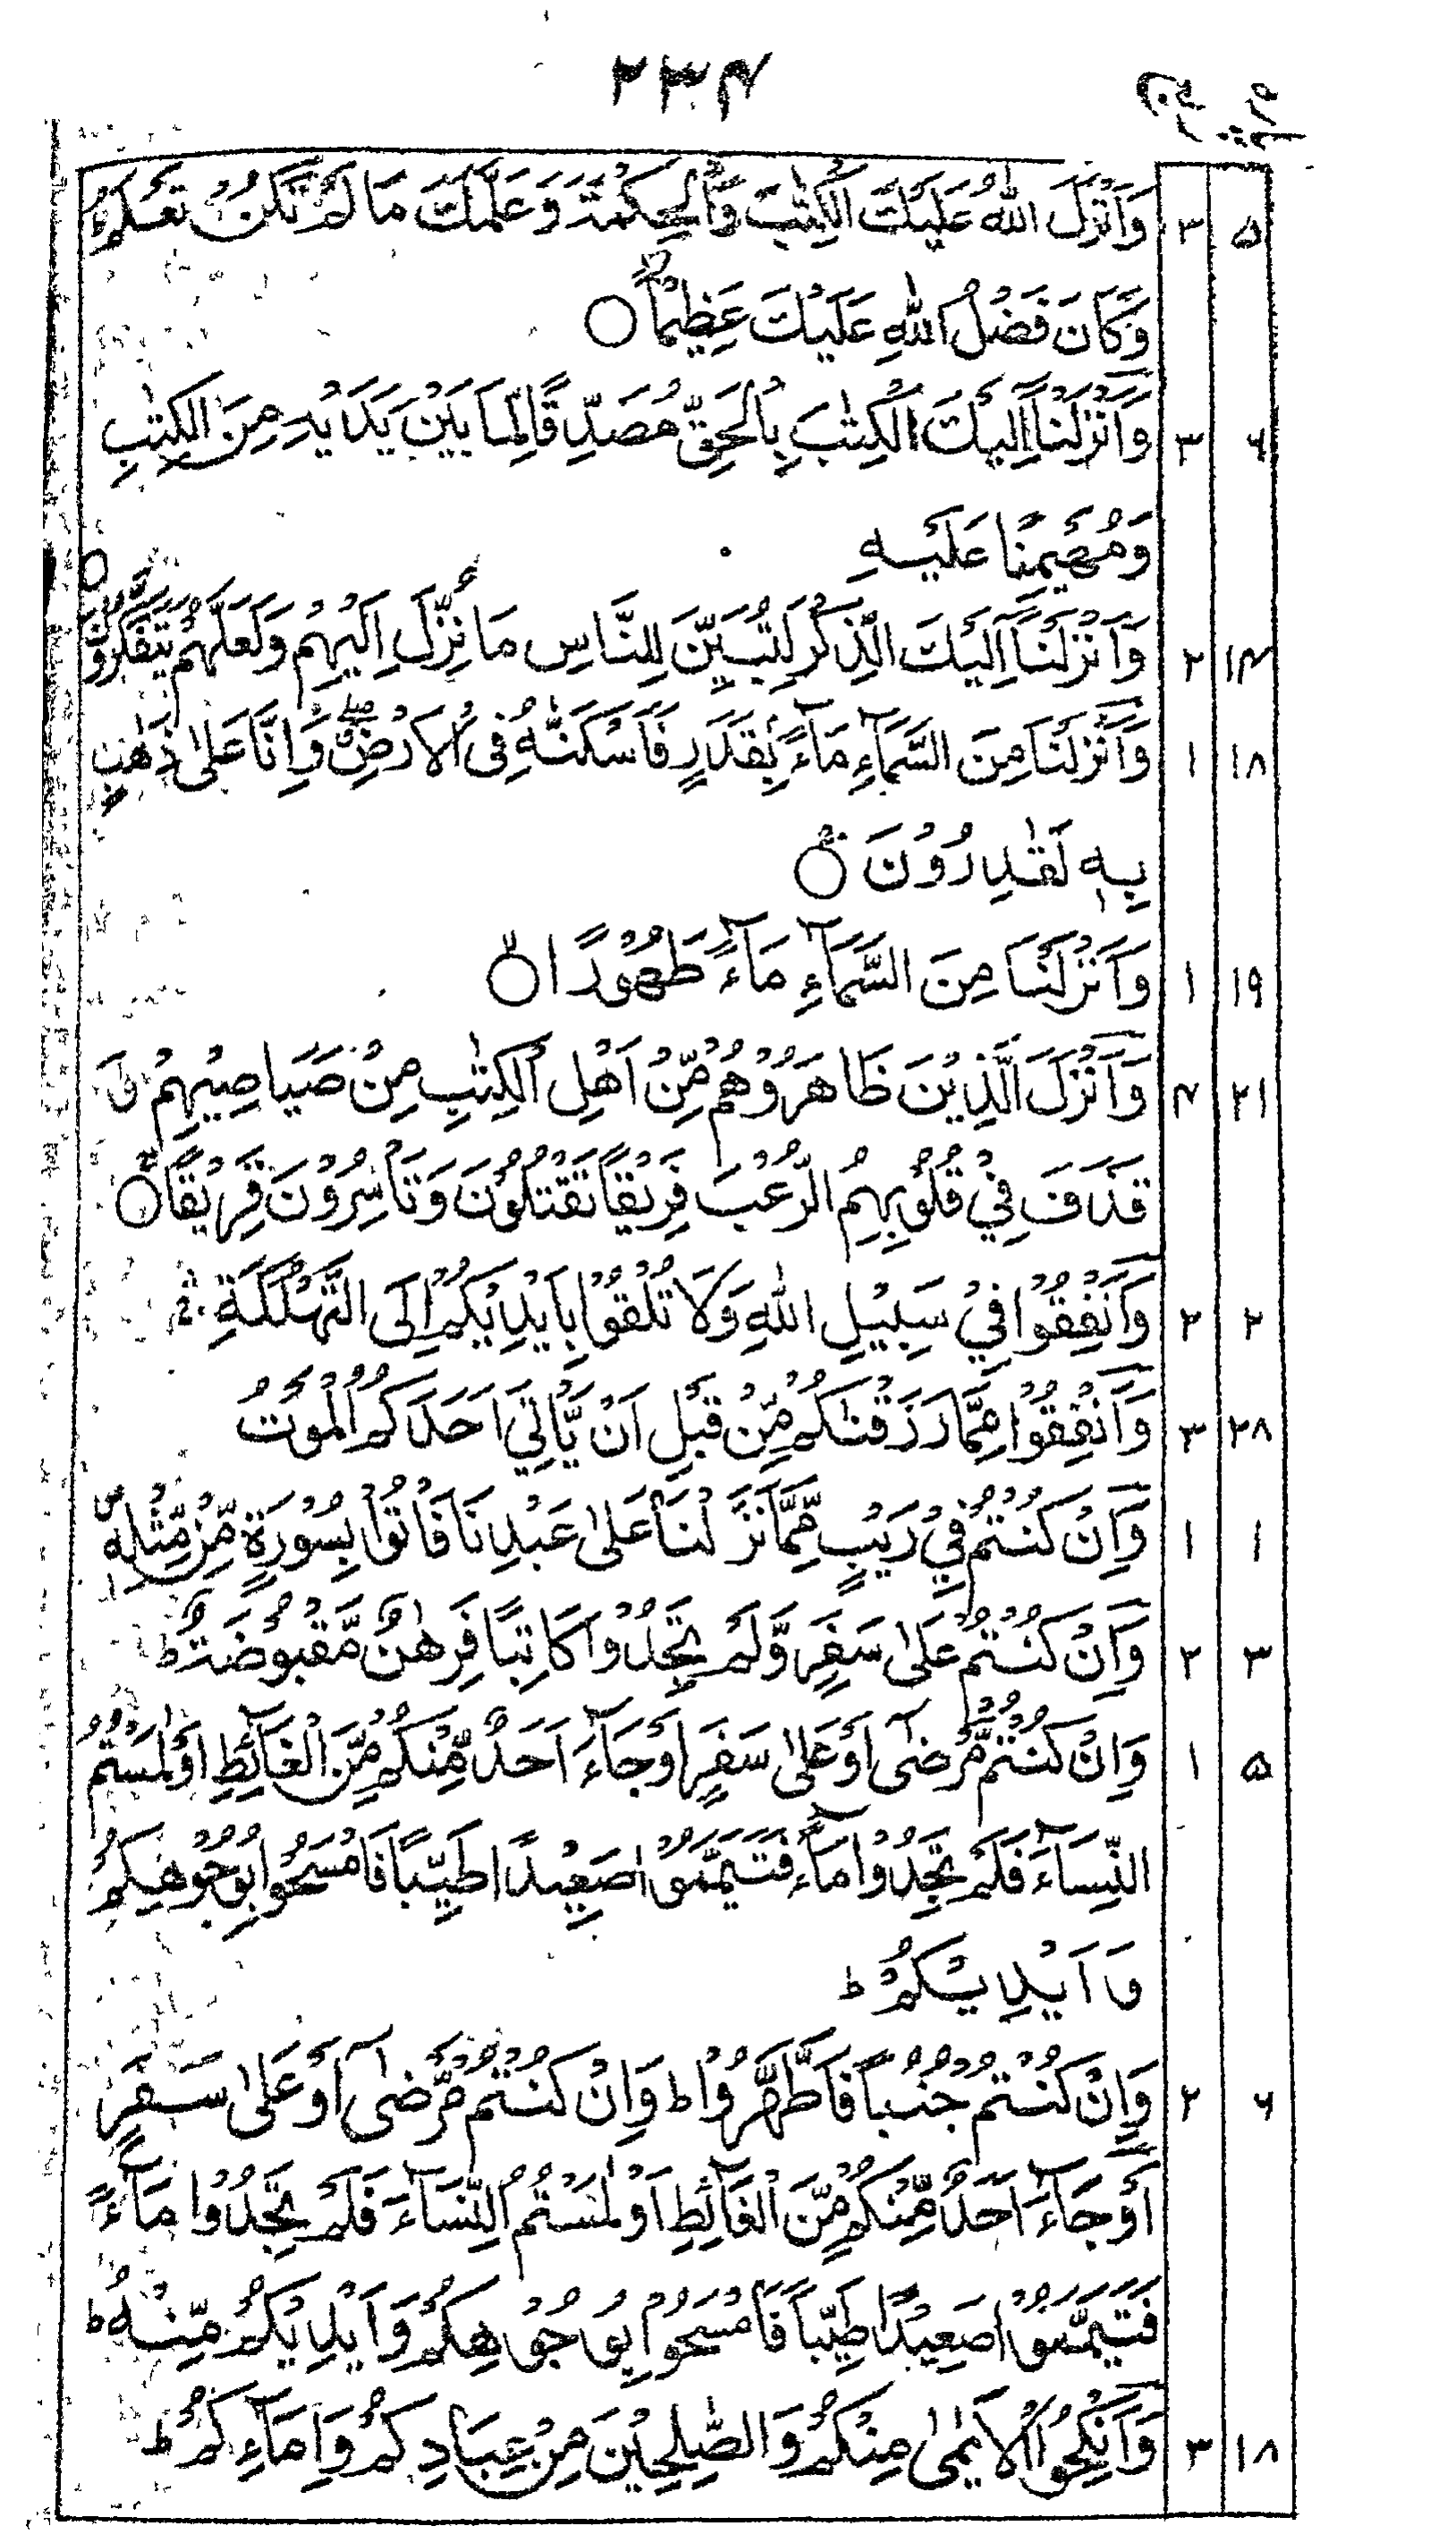 ۲۳۴
وَاَنْزَلَ اللّٰهُ عَلَيْكَ الْكِتٰبَ وَالْحِكْمَةَ وَعَلَّمَكَ مَا لَمْ تَكُنْ تَعْلَمُ ۳ ۵
وَكَانَ فَضْلُ اللّٰهِ عَلَيْكَ عَظِيْمًا ○
وَاَنْزَلْنَا اِلَيْكَ الْكِتٰبَ بِالْحَقِّ مُصَدِّقًا لِّمَا بَيْنَ يَدَيْهِ مِنَ الْكِتٰبِ ۳ ۶
وَمُهَيْمِنًا عَلَيْهِ
وَاَنْزَلْنَا اِلَيْكَ الذِّكْرَ لِتُبَيِّنَ لِلنَّاسِ مَا نُزِّلَ اِلَيْهِمْ وَلَعَلَّهُمْ يَتَفَكَّرُوْنَ ○ ۲ ۱۴
وَاَنْزَلْنَا مِنَ السَّمَآءِ مَآءًۢ بِقَدَرٍ فَاَسْكَنّٰهُ فِى الْاَرْضِ ۖ وَاِنَّا عَلٰى ذَهَابٍۭ ۱ ۱۸
بِهٖ لَقٰدِرُوْنَ ○
وَاَنْزَلْنَا مِنَ السَّمَآءِ مَآءً طَهُوْرًا ○ ۱ ۱۹
وَاَنْزَلَ الَّذِيْنَ ظَاهَرُوْهُمْ مِّنْ اَهْلِ الْكِتٰبِ مِنْ صَيَاصِيْهِمْ وَ ۴ ۲۱
قَذَفَ فِيْ قُلُوْبِهِمُ الرُّعْبَ فَرِيْقًا تَقْتُلُوْنَ وَتَاْسِرُوْنَ فَرِيْقًا ○
وَاَنْفِقُوْا فِيْ سَبِيْلِ اللّٰهِ وَلَا تُلْقُوْا بِاَيْدِيْكُمْ اِلَى التَّهْلُكَةِ ۲ ۲
وَاَنْفِقُوْا مِمَّا رَزَقْنٰكُمْ مِّنْ قَبْلِ اَنْ يَّاْتِيَ اَحَدَكُمُ الْمَوْتُ ۳ ۲۸
وَاِنْ كُنْتُمْ فِيْ رَيْبٍ مِّمَّا نَزَّلْنَا عَلٰى عَبْدِنَا فَاْتُوْا بِسُوْرَةٍ مِّنْ مِّثْلِهٖ ۱ ۱
وَاِنْ كُنْتُمْ عَلٰى سَفَرٍ وَّلَمْ تَجِدُوْا كَاتِبًا فَرِهٰنٌ مَّقْبُوْضَةٌ ط ۲ ۳
وَاِنْ كُنْتُمْ مَّرْضٰٓى اَوْ عَلٰى سَفَرٍ اَوْ جَآءَ اَحَدٌ مِّنْكُمْ مِّنَ الْغَآئِطِ اَوْ لٰمَسْتُمُ ۱ ۵
النِّسَآءَ فَلَمْ تَجِدُوْا مَآءً فَتَيَمَّمُوْا صَعِيْدًا طَيِّبًا فَامْسَحُوْا بِوُجُوْهِكُمْ
وَاَيْدِيْكُمْ ط
وَاِنْ كُنْتُمْ جُنُبًا فَاطَّهَّرُوْا ط وَاِنْ كُنْتُمْ مَّرْضٰٓى اَوْ عَلٰى سَفَرٍ ۲ ۶
اَوْ جَآءَ اَحَدٌ مِّنْكُمْ مِّنَ الْغَآئِطِ اَوْ لٰمَسْتُمُ النِّسَآءَ فَلَمْ تَجِدُوْا مَآءً
فَتَيَمَّمُوْا صَعِيْدًا طَيِّبًا فَامْسَحُوْا بِوُجُوْهِكُمْ وَاَيْدِيْكُمْ مِّنْهُ ط
وَاَنْكِحُوا الْاَيَامٰى مِنْكُمْ وَالصّٰلِحِيْنَ مِنْ عِبَادِكُمْ وَاِمَآئِكُمْ ط ۳ ۱۸